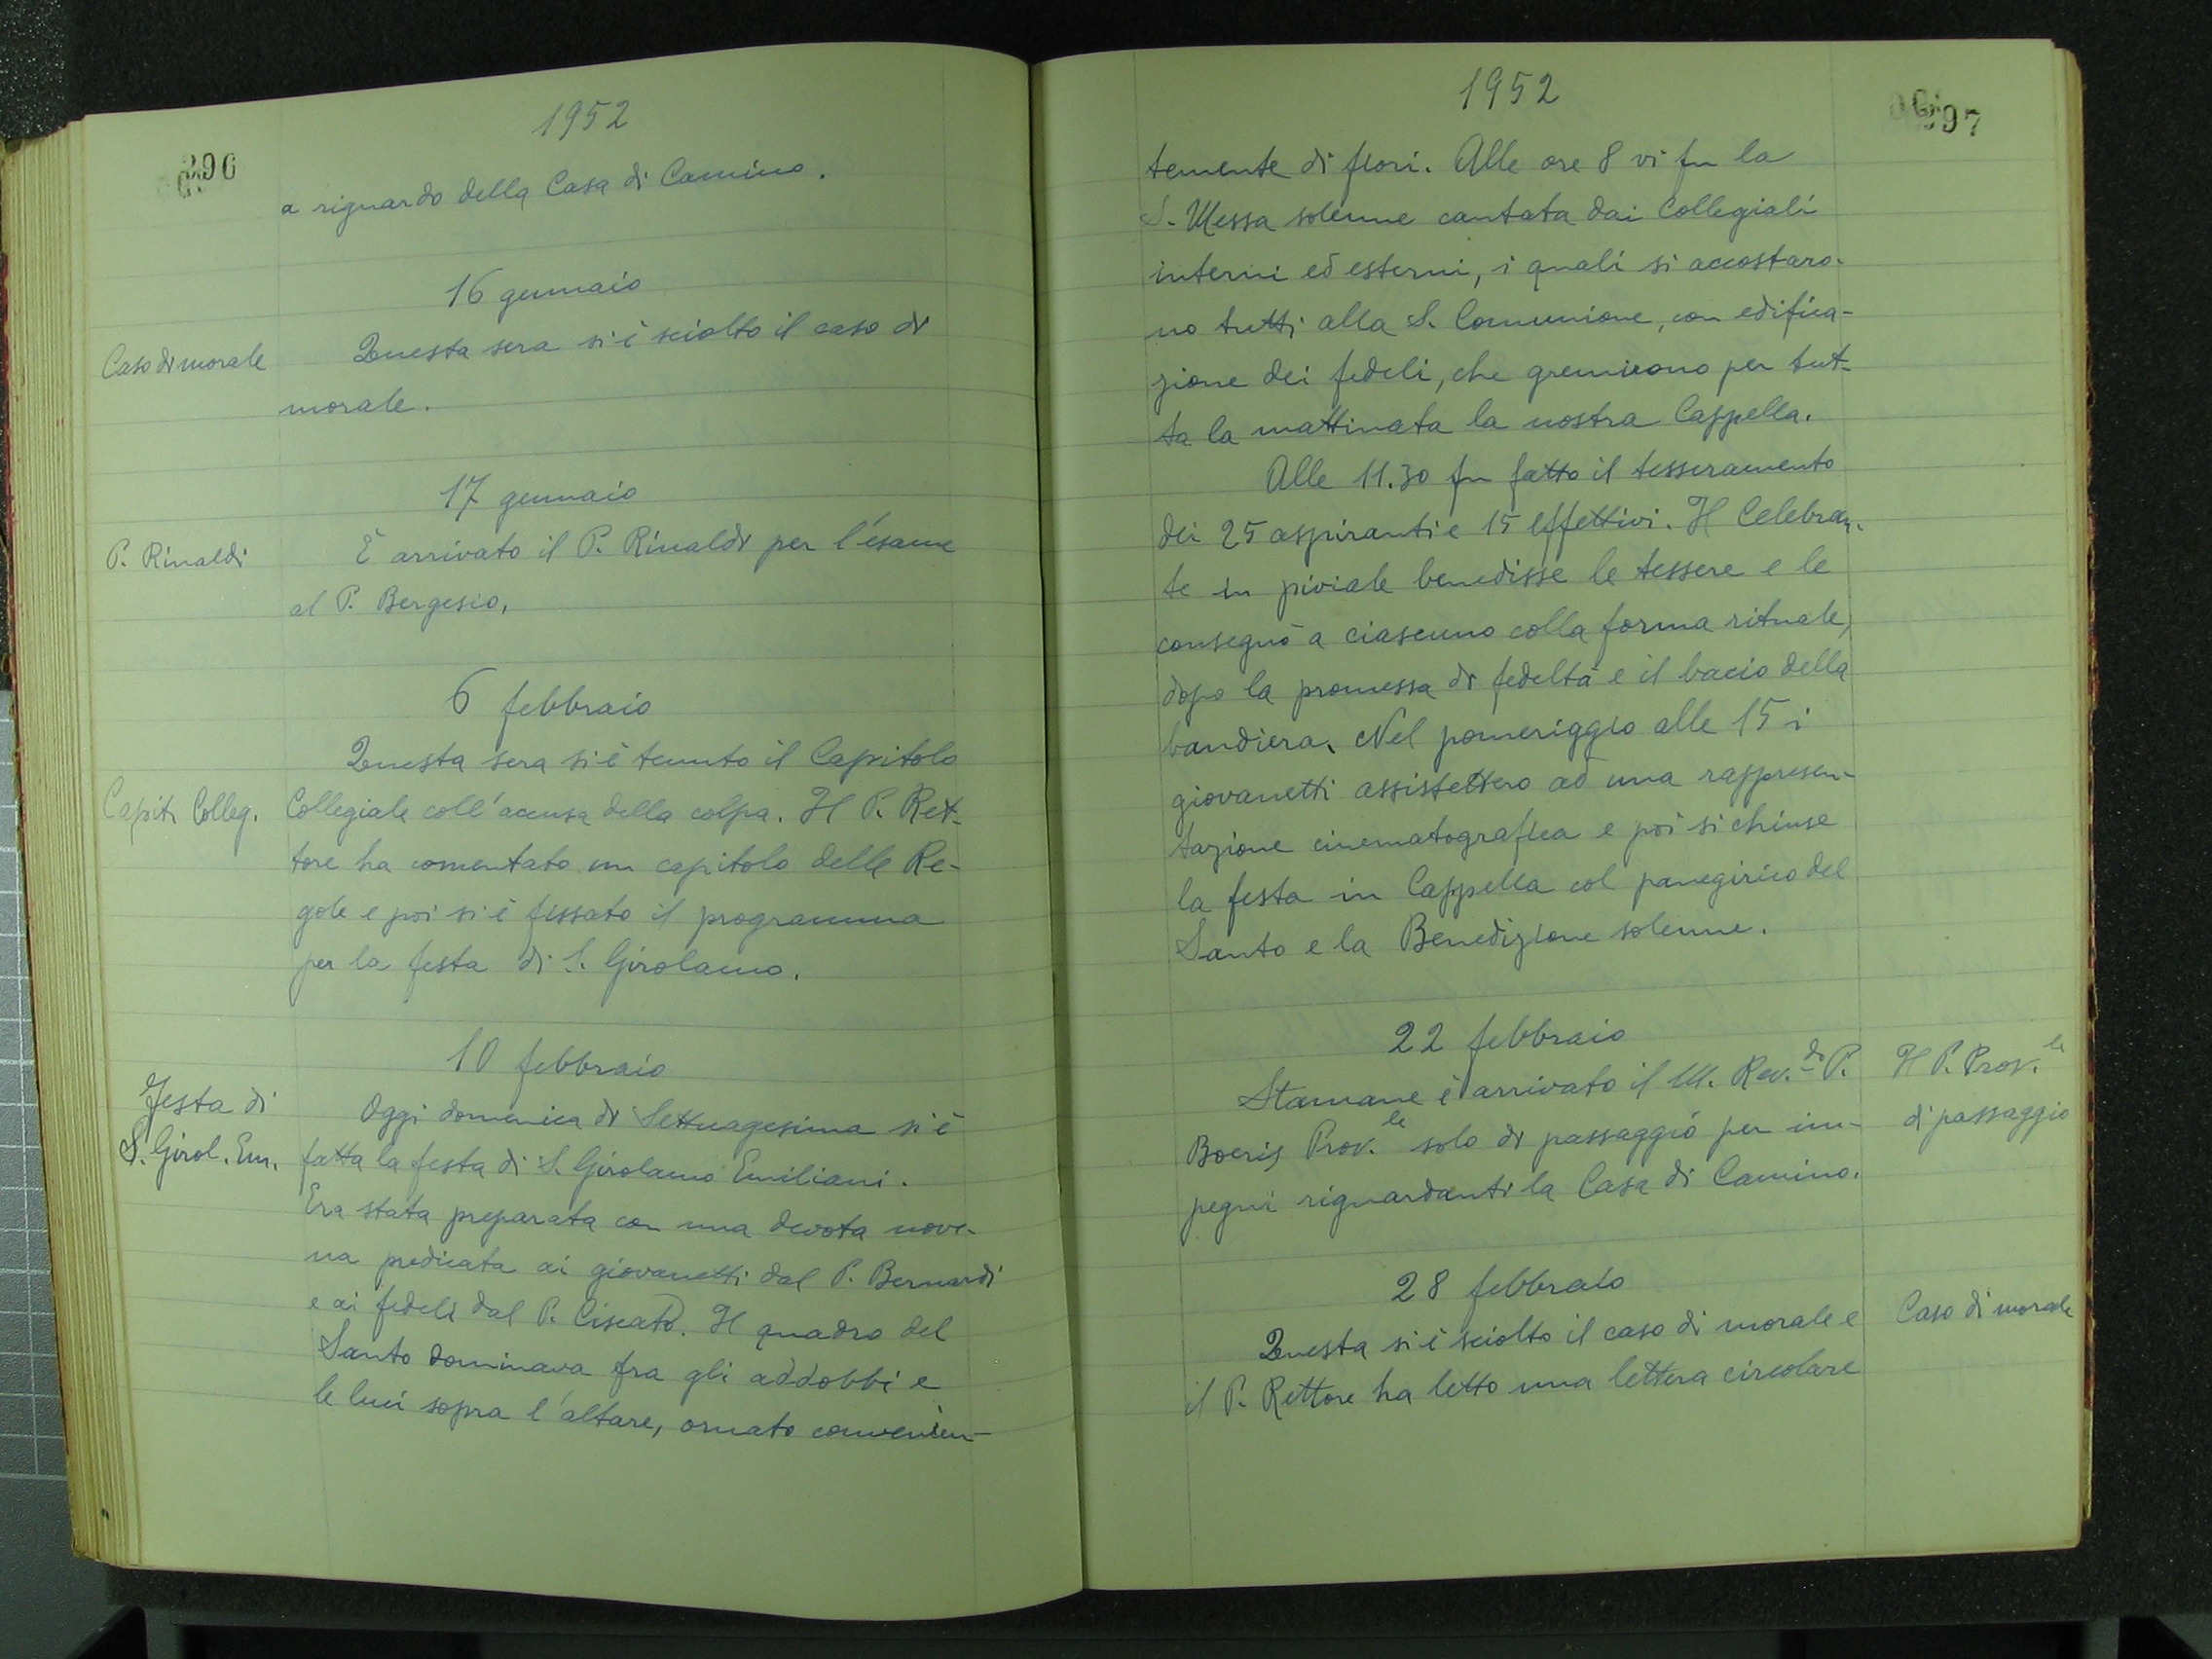 1952
296
a riguardo della Casa di Camino.
16 gennaio
Caso di morale
Questa sera si è sciolto il caso di
morale.
17 gennaio
P. Rinaldi
È arrivato il P. Rinaldi per l'esame
al P. Bergesio.
6 febbraio
Questa sera si è tenuto il Capitolo
Capit. Colleg.
Collegiale coll'accusa della colpa. Il P. Ret-
tore ha comentato un capitolo delle Re-
gole e poi si è fissato il programma
per la festa di S. Girolamo.
10 febbraio
Festa di
S. Girol. Em.
Oggi domenica di Settuagesima si è
fatta la festa di S. Girolamo Emiliani.
Era stata preparata con una devota nove-
na predicata ai giovanetti dal P. Bernardi
e ai fedeli dal P. Ciscato. Il quadro del
Santo dominava fra gli addobbi e
le luci sopra l'altare, ornato convenien-
1952
297
temente di fiori. Alle ore 8 vi fu la
S. Messa solenne cantata dai Collegiali
interni ed esterni, i quali si accostaro-
no tutti alla S. Comunione, con edifica-
zione dei fedeli, che gremirono per tut-
ta la mattinata la nostra Cappella.
Alle 11.30 fu fatto il tesseramento
dei 25 aspiranti e 15 effettivi. Il Celebran-
te in piviale benedisse le tessere e le
consegnò a ciascuno colla forma rituale,
dopo la promessa di fedeltà e il bacio della
bandiera. Nel pomeriggio alle 15 i
giovanetti assistettero ad una rappresen-
tazione cinematografica e poi si chiuse
la festa in Cappella col panegirico del
Santo e la Benedizione solenne.
22 febbraio
Stamane è arrivato il M. Rev.do P.
Boeris Prov.le solo di passaggio per im-
pegni riguardanti la Casa di Camino.
Il P. Prov.le
di passaggio
28 febbraio
Questa si è sciolto il caso di morale e
il P. Rettore ha letto una lettera circolare
Caso di morale